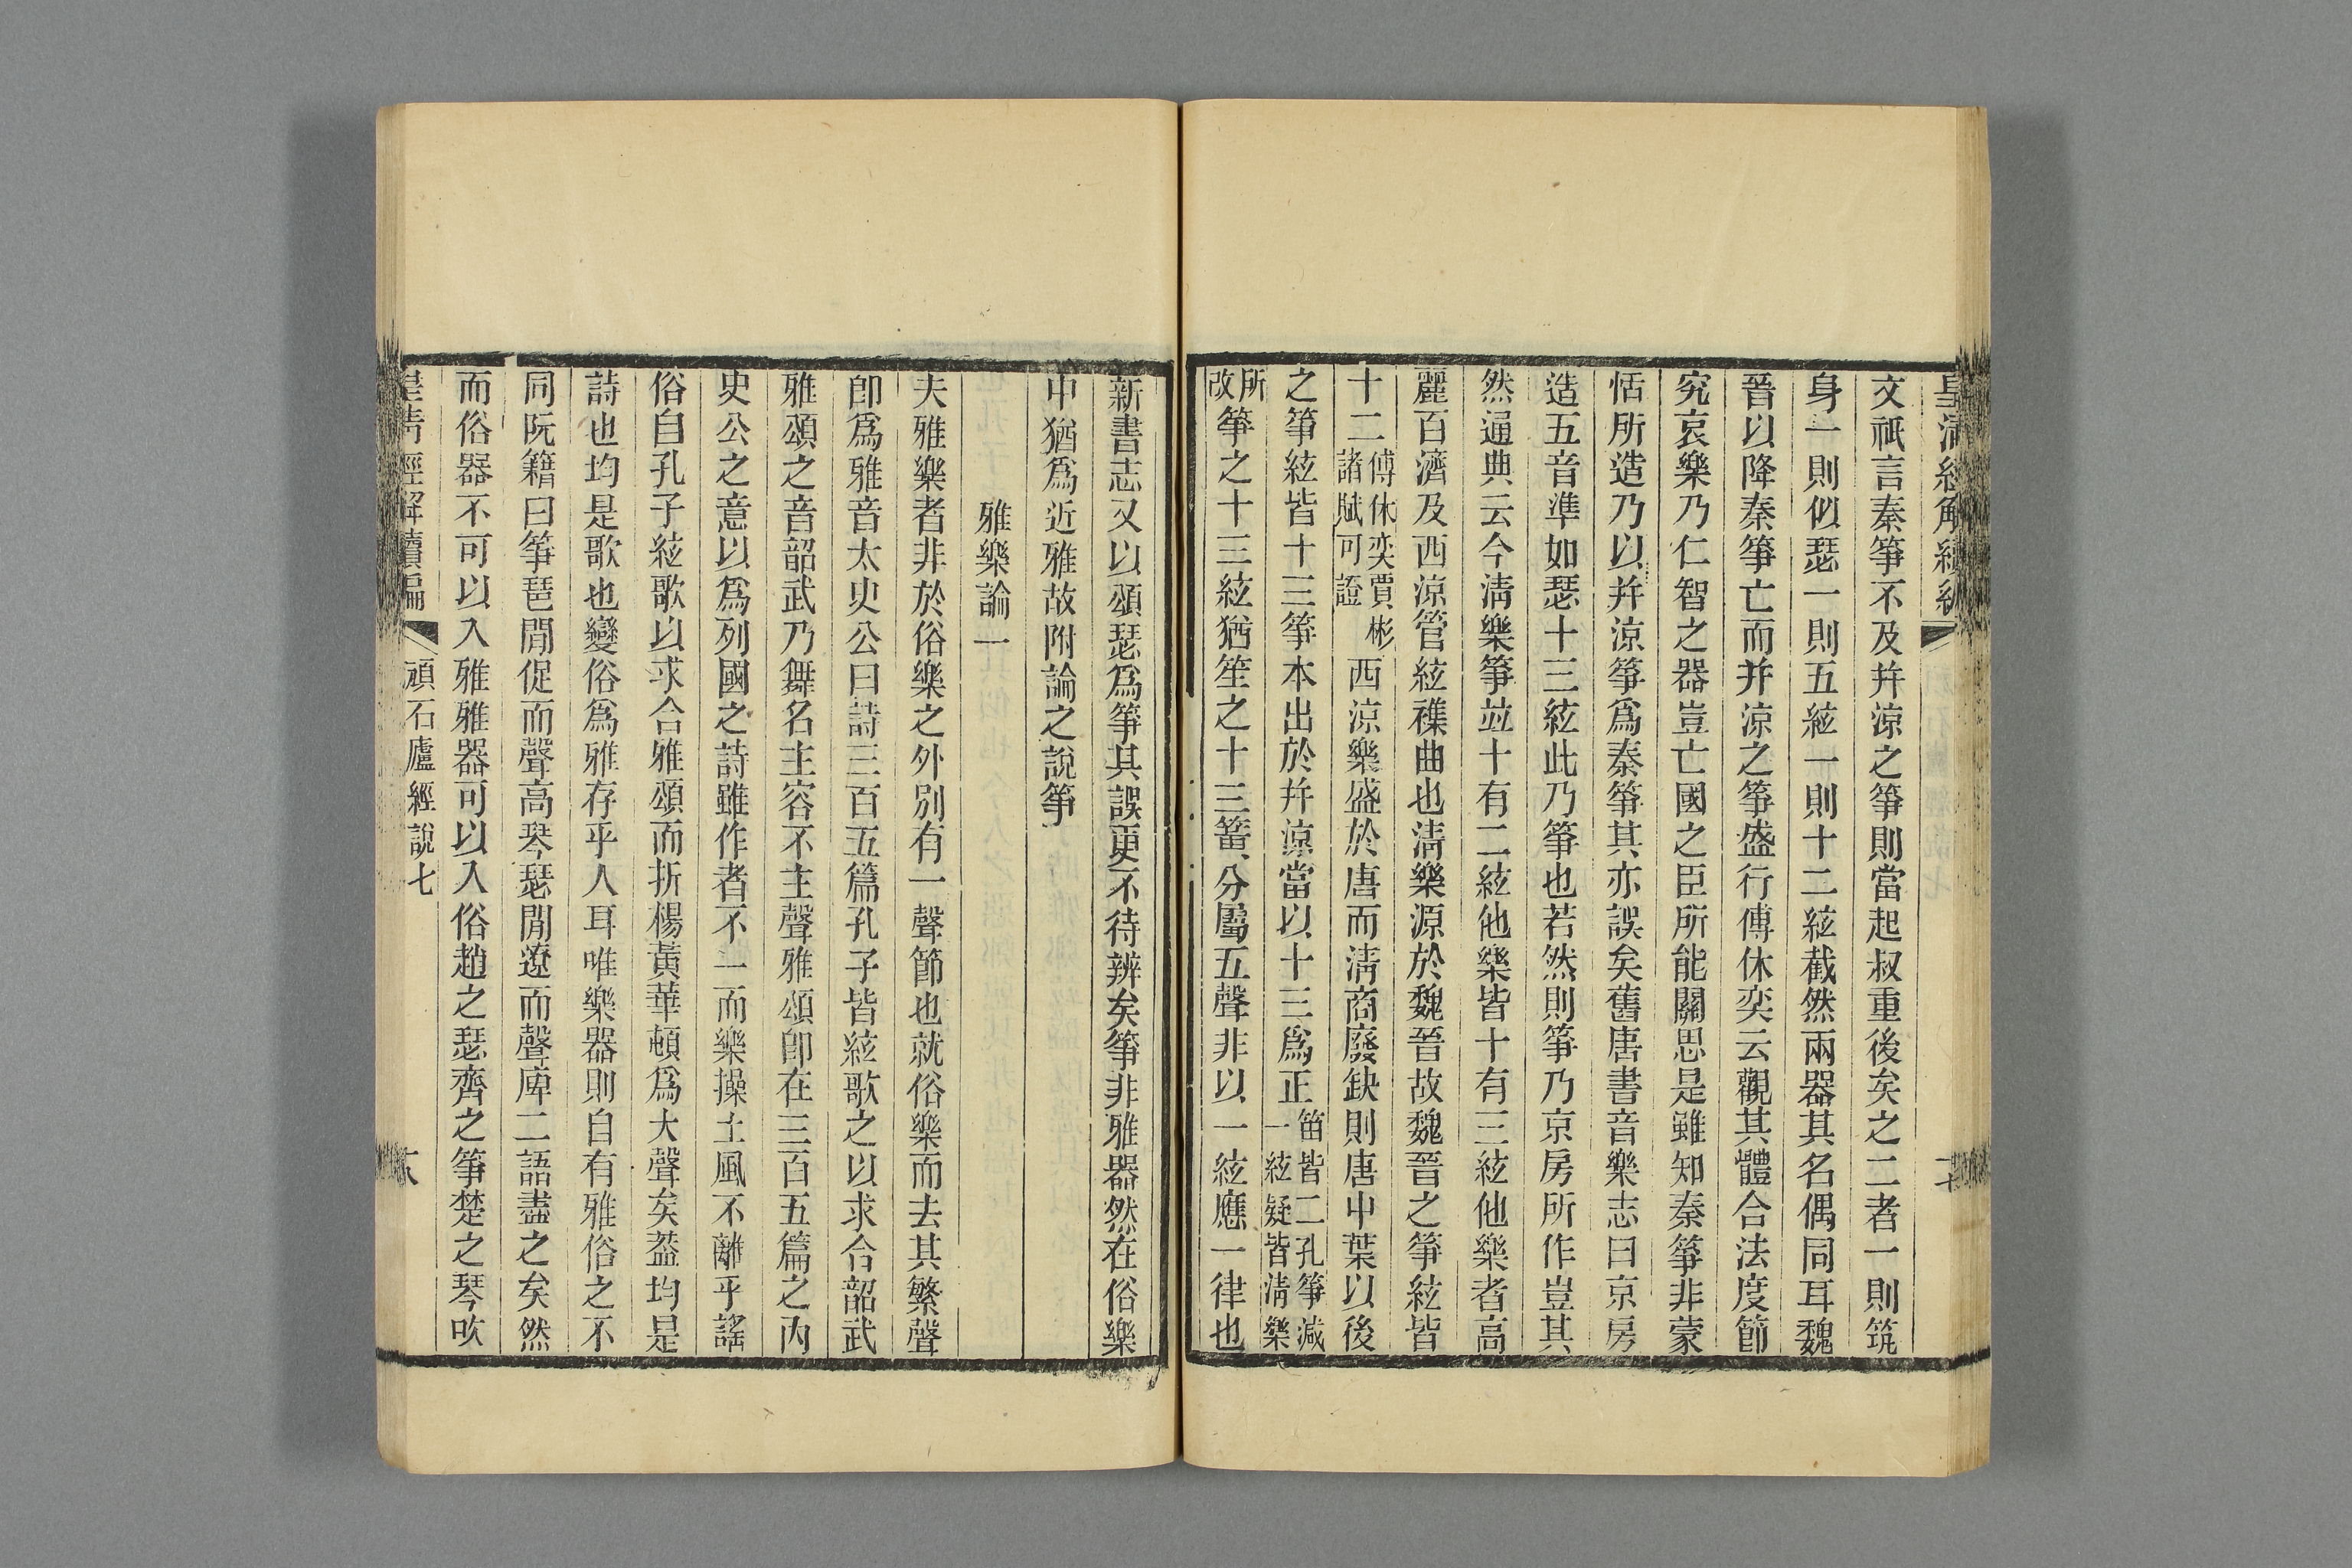 皇清經解續編
文祇言秦箏不及幷涼之箏則當起叔重後矣之二者一則筑
身一則似瑟一則五絃一則十二絃截然兩器其名偶同耳魏
晉以降秦箏亡而幷涼之箏盛行傅休奕云觀其體合法度節
究哀樂乃仁智之器豈亡國之臣所能關思是雖知秦箏非蒙
恬所造乃以幷涼箏爲秦箏其亦誤矣舊唐書音樂志曰京房
造五音準如瑟十三絃此乃箏也若然則箏乃京房所作豈其
然通典云今淸樂箏竝十有二絃他樂皆十有三絃他樂者高
麗百濟及西涼管絃襍曲也淸樂源於魏晉故魏晉之箏絃皆
十二傅休奕賈彬諸賦可證西涼樂盛於唐而淸商廢缺則唐中葉以後
之箏絃皆十三箏本出於幷涼當以十三爲正笛皆二孔箏減一絃疑皆淸樂
所改箏之十三絃猶笙之十三簧分屬五聲非以一絃應一律也
新書志又以頌瑟爲箏其誤更不待辨矣箏非雅器然在俗樂
中猶爲近雅故附論之說箏
雅樂論一
夫雅樂者非於俗樂之外別有一聲節也就俗樂而去其繁聲
卽爲雅音太史公曰詩三百五篇孔子皆絃歌之以求合韶武
雅頌之音韶武乃舞名主容不主聲雅頌卽在三百五篇之內
史公之意以爲列國之詩雖作者不一而樂操土風不離乎謠
俗自孔子絃歌以求合雅頌而折楊黃華頓爲大聲矣葢均是
詩也均是歌也變俗爲雅存乎人耳唯樂器則自有雅俗之不
同阮籍曰箏琶閒促而聲高琴瑟閒遼而聲庳二語盡之矣然
而俗器不可以入雅雅器可以入俗趙之瑟齊之箏楚之琴吹
皇淸經解續編 頑石廬經說七 六